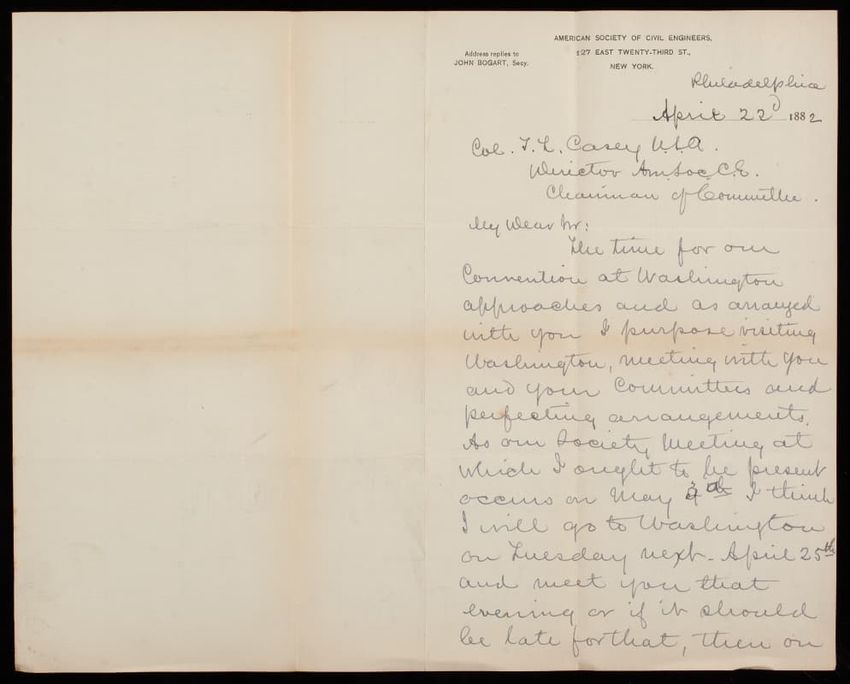 AMERICAN SOCIETY OF CIVIL ENGINEERS,
127 EAST TWENTY-THIRD ST.,
NEW YORK.
Address replies to
JOHN BOGART, Secy.
Philadelphia
April 22d 1882
Col. T. L. Casey U.S.A.
Director Am.Soc.C.E.
Chairman of Committee.
My Dear Sir:
The time for our
Convention at Washington
approaches and as arranged
with you I purpose visiting
Washington, meeting with you
and your Committees and
perfecting arrangements.
As our Society Meeting at
which I ought to be present
occurs on May 3d I think
I will go to Washington
on Tuesday next - April 25th
and meet you that
evening or if it should
be late for that, then on